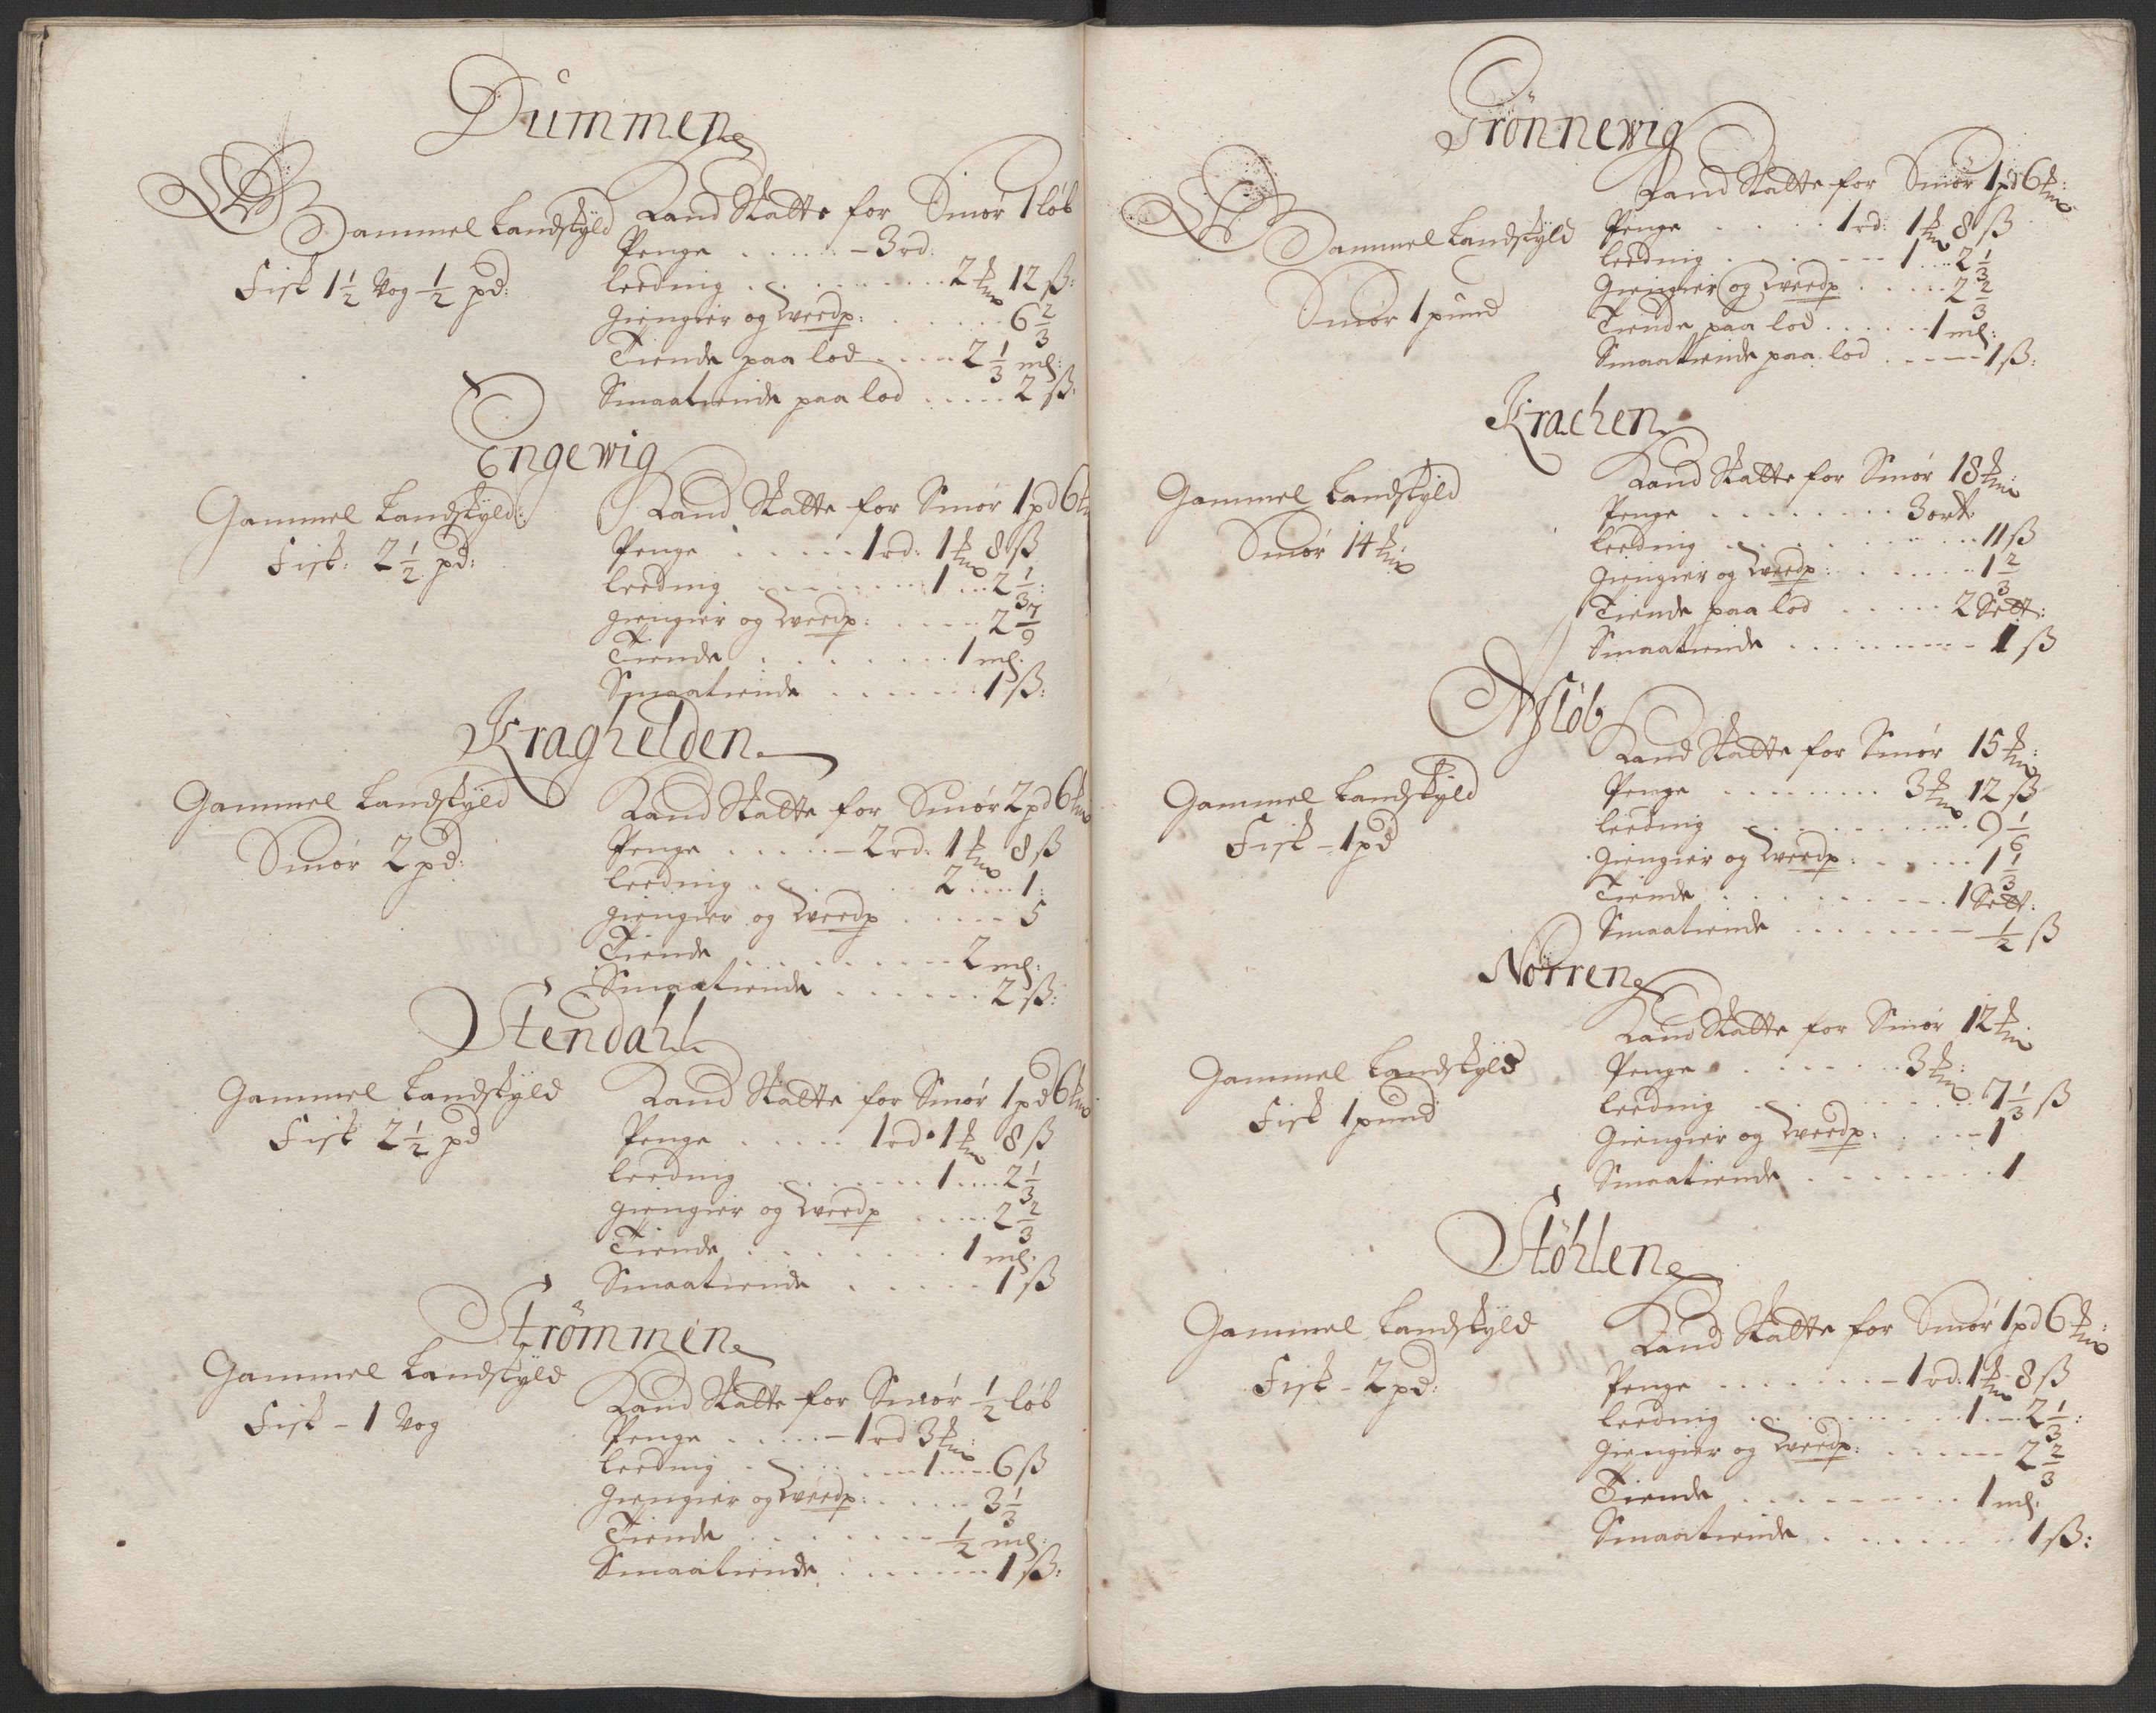 Dümmen
Gammel Landskyld
Fisk 1 1/2 Vog 1/2 pd:
Land Skatte for Smør 1 løb
Penge ..... - 3 rd:
Leeding ......... 2 mk 12 ß:
Giengier og Dverdp: ...... 6 2/3
Tiende paa lod ..... 2 1/3 ml:
Smaatiende paa lod ..... 2 ß:
Engewig
Gammel Landskyld:
Fisk: 2 1/2 pd:
Land Skatte for Smør 1 pd 6 mk
Penge ..... 1 rd: 1 mk 8 ß
Leeding ....... 1 ... 2 1/3:
giengier og Dverdp: ..... 2 7/9
Tiende ........ 1 ml:
Smaatiende ....... 1 ß:
Kraghelden
Gammel Landskyld
Smør 2 pd:
Land Skatte for Smør 2 pd 6 mk
Penge ..... - 2 rd: 1 mk 8 ß
Leeding ....... 2 .... 1:
giengier og Dverdp ..... 5
Tiende ......... 2 ml:
Smaatiende ...... 2 ß:
Stendahl
Gammel Landskyld
Fisk 2 1/2 pd
Land Skatte for Smør 1 pd 6 mk
Penge ..... 1 rd: 1 mk 8 ß
Leeding ....... 1 .... 2 1/3
giengier og Dverdp ..... 2 2/3
Tiende ........ 1 ml:
Smaatiende ..... 1 ß
Strömmen
Gammel Landskyld
Fisk - 1 Vog
Land Skatte for Smør 1/2 løb
Penge ..... - 1 rd 3 mk:
Leeding ....... 1 ..... 6 ß
Giengier og Dverdp: ..... 3 1/3
Tiende ....... 1/2 ml:
Smaatiende ...... 1 ß:
Grönnewig
Gammel Landskyld
Smør 1 pund
Land Skatte for Smør 1 pd 6 mk:
Penge ..... 1 rd: 1 mk 8 ß
Leeding ....... 1 .... 2 1/3
Giengier og Dverdp ..... 2 2/3
Tiende paa lod ...... 1 ml:
Smaattiende paa lod ..... 1 ß:
Krachen
Gammel Landskyld
Smør 14 mk
Land Skatte for Smør 18 mk:
Penge ........ 3 ort:
Leeding ......... 11 ß
Giengier og Dverdp: ...... 1 2/3
Tiende paa lod ..... 2 Sett:
Smaatiende ......... 1 ß
Asløb
Gammel Landskyld
Fisk - 1 pd
Land Skatte for Smør 15 mk:
Penge ......... 3 mk 12 ß
Leeding ......... 9 1/6
Giengier og Dverdp: ...... 1 1/3
Tiende ......... 1 Sett:
Smaatiende ........ 1/2 ß
Nörren
Gammel Landskyld
Fisk 1 pund
Land Skatte for Smør 12 mk:
Penge ........ 3 mk:
Leeding ......... 7 1/3 ß
Giengier og Dverdp: ..... 1
Smaatiende ........ 1
Stöhlen
Gammel Landskyld
Fisk - 2 pd:
Land Skatte for Smør 1 pd 6 mk:
Penge ....... - 1 rd: 1 mk 8 ß
Leeding ......... 1 ... 2 1/3:
Giengier og Dverdp: ...... 2 2/3
Tiende ......... 1 ml:
Smaatiende ........ 1 ß: